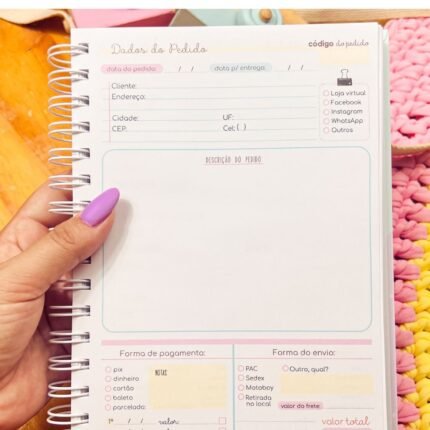 Dados do Pedido
código do pedido
data do pedido: / / data p/ entrega: / /
Cliente:
Endereço:
Cidade: UF:
CEP: Cel:( )
Loja virtual
Facebook
Instagram
WhatsApp
Outros
DESCRIÇÃO DO PEDIDO
Forma de pagamento:
pix
dinheiro
cartão
boleto
parcelada:
NOTAS
1ª / / valor:
Forma do envio:
PAC
Sedex
Motoboy
Retirada
no local
Outro, qual?
valor do frete
valor total